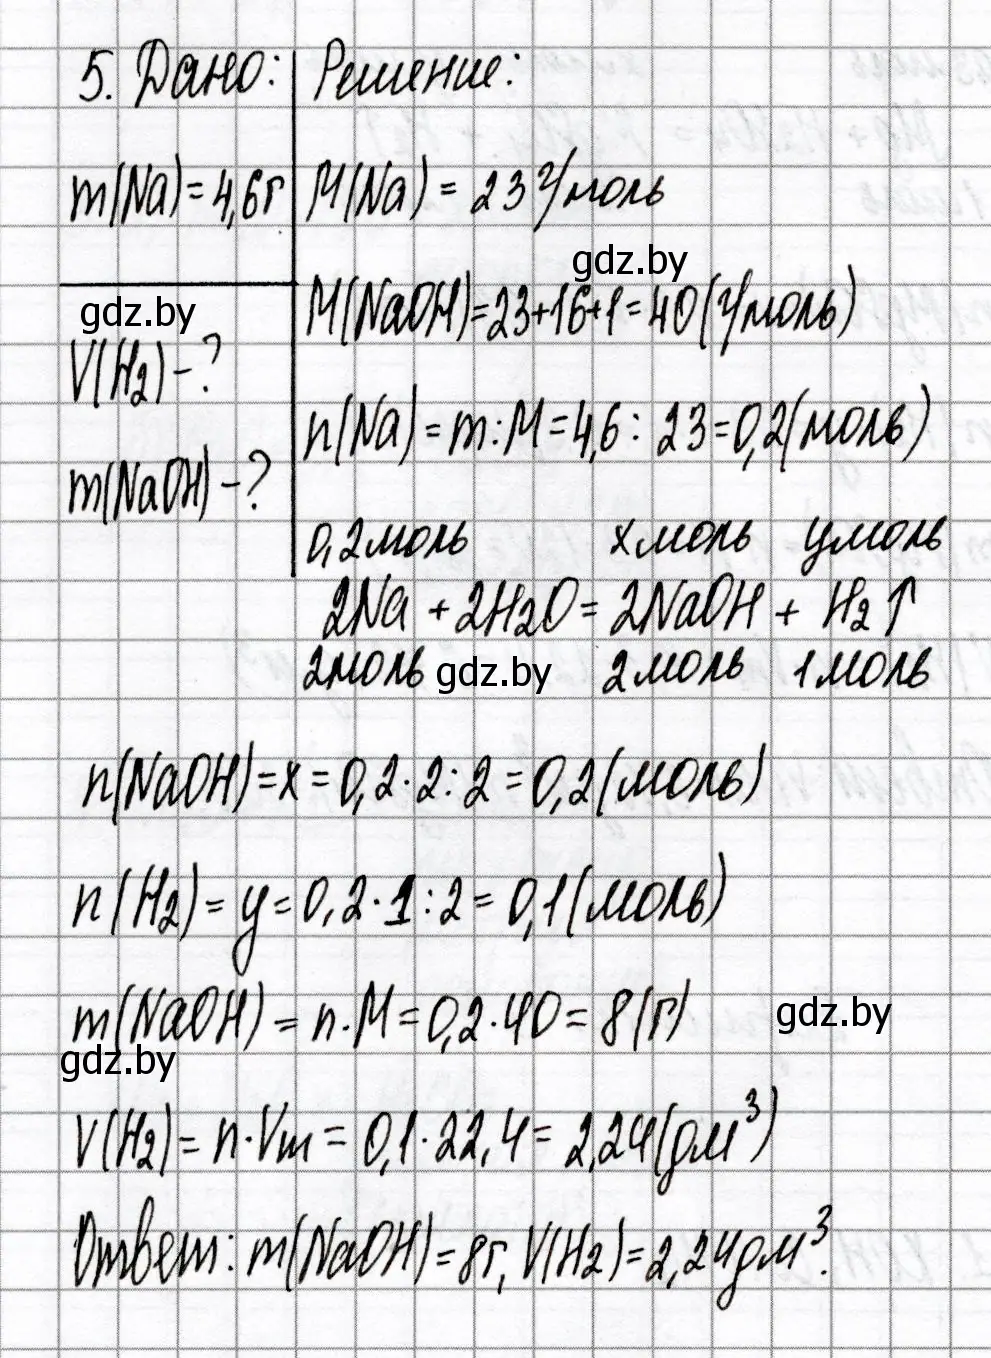 5. Дано: Решение:
m(Na)=4,6г M(Na) = 23 г/моль
gdz.by
gdz.by M(NaOH)=23+16+1=40(г/моль)
V(H₂)-?
n(Na)=m:M=4,6:23=0,2(моль)
m(NaOH)-?
0,2моль xмоль yмоль
2Na + 2H₂O = 2NaOH + H₂↑
2моль gdz.by 2моль 1моль
n(NaOH)=x=0,2·2:2=0,2(моль)
n(H₂)=y=0,2·1:2=0,1(моль)
m(NaOH)=n·M=0,2·40=8(г) gdz.by
gdz.by
V(H₂)=n·Vm=0,1·22,4=2,24(дм³)
Ответ: m(NaOH)=8г, V(H₂)=2,24дм³.